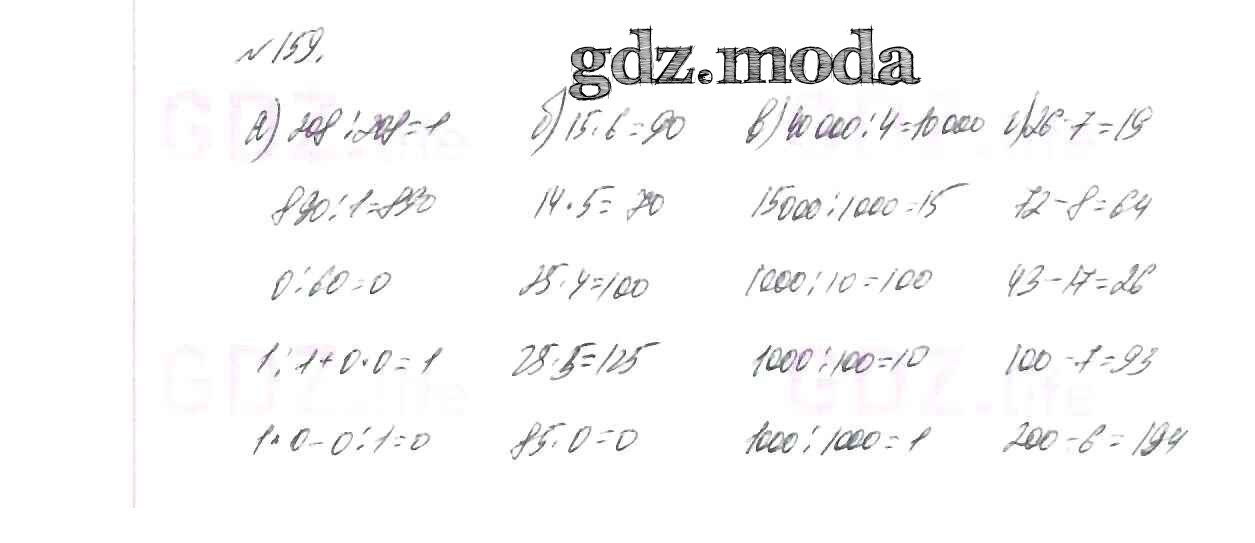 №159.
gdz.moda
а) 208:208=1 б) 15·6=90 в) 40000:4=10000 г) 26-7=19
890:1=890 14·5=70 15000:1000=15 72-8=64
0:60=0 25·4=100 1000:10=100 43-17=26
1:1+0·0=1 25·5=125 1000:100=10 100-7=93
1·0-0:1=0 85·0=0 1000:1000=1 200-6=194
GDZ.life
GDZ.life
GDZ.life
GDZ.life